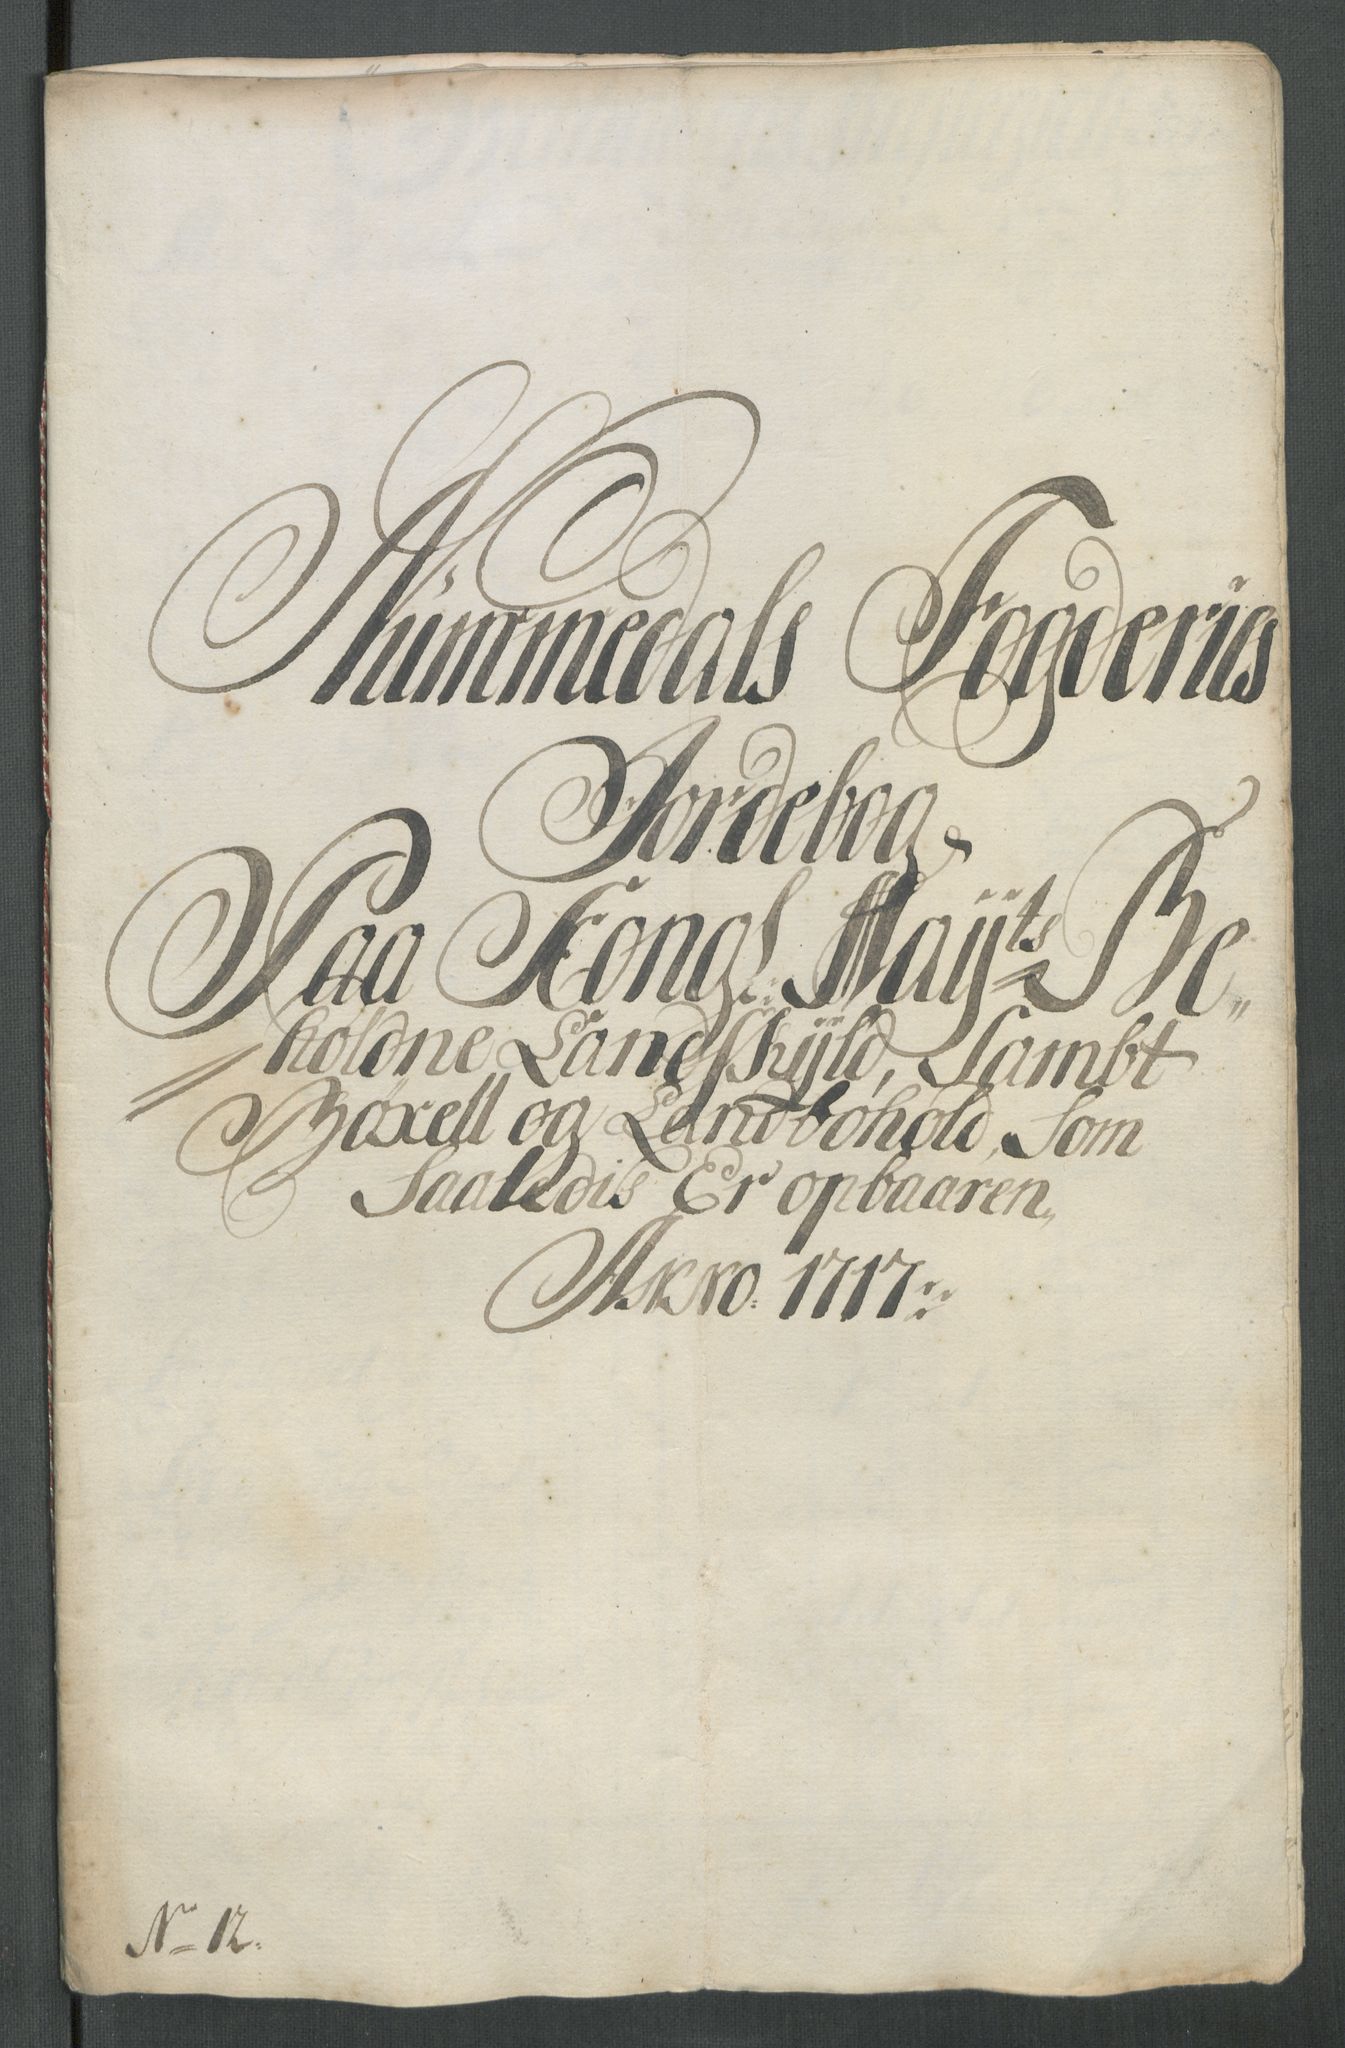 Nummedals Fogderies
Jordebog
Paa Kongl. Mayts Be„
holdne Landskyld, Sambt
Böxell og Landbohold, Som
Saaledis Er opbaaren„
Anno 1717
No 12.